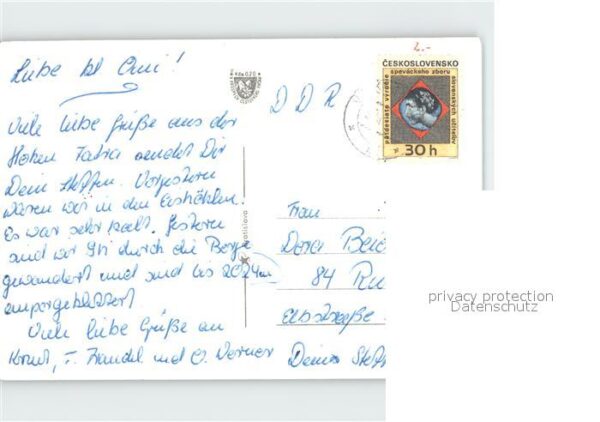 Liebe kl Omi!
Viele liebe Grüße aus der
Hohen Tatra sendet Dir
Dein Steffen. Vorgestern
waren wir in den Eishöhlen.
Es war sehr kalt. Gestern
sind wir 9h durch die Berge
gewandert und sind bis 2024m
emporgeklettert
Viele liebe Grüße an
T. und O. Werner
Kčs 0,20
DDR
2.-
ČESKOSLOVENSKO
päťdesiate výročie
speváckeho zboru
slovenských učiteľov
30 h
Frau
Dora
84
Elbstraße
privacy protection
Datenschutz